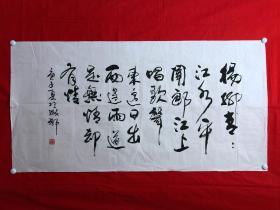 楊柳青〻
江水平
聞郎江上
唱歌聲
東邊日出
西邊雨道
是無情却
有情
庚子夏於